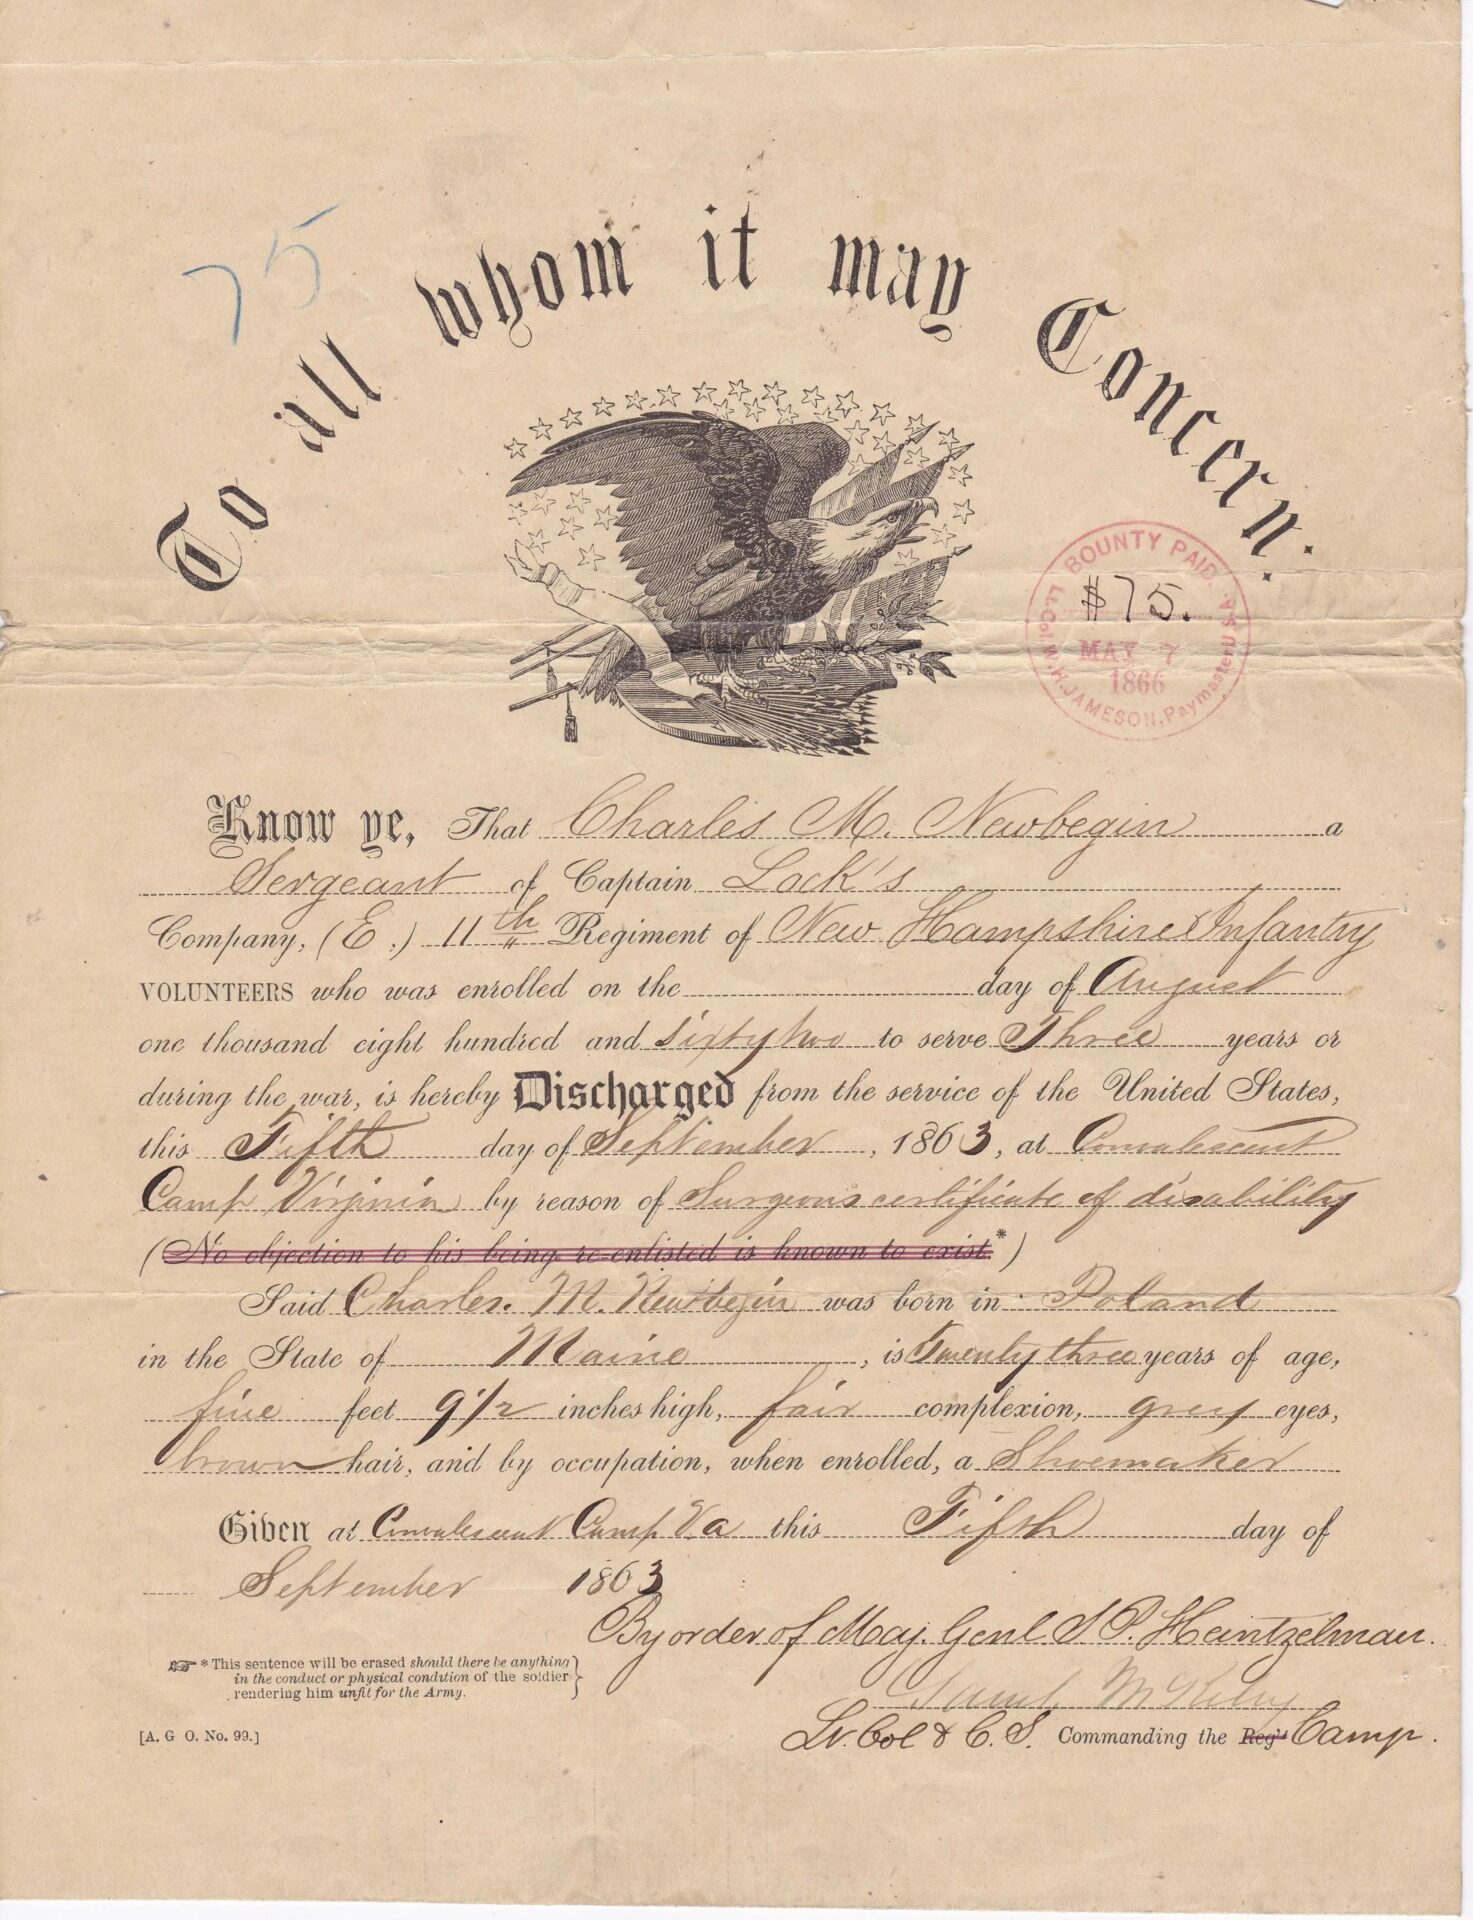 75
To all whom it may Concern:
BOUNTY PAID.
$75.
MAY 7
1866
Lt. Col. W. H. JAMESON, Paymaster U.S.A.
Know ye, That Charles M. Newbegin a
Sergeant of Captain Lock's
Company, (E.) 11th Regiment of New Hampshire Infantry
VOLUNTEERS who was enrolled on the day of August
one thousand eight hundred and sixty two to serve Three years or
during the war, is hereby Discharged from the service of the United States,
this Fifth day of September, 1863, at Convalescent
Camp Virginia by reason of Surgeons certificate of disability
(No objection to his being re-enlisted is known to exist.*)
Said Charles. M. Newbegin was born in Poland
in the State of Maine, is Twenty three years of age,
five feet 9 1/2 inches high, fair complexion, grey eyes,
brown hair, and by occupation, when enrolled, a Shoemaker
Given at Convalescent Camp Va this Fifth day of
September 1863
By order of Maj. Genl S. P. Heintzelman.
* This sentence will be erased should there be anything
in the conduct or physical condition of the soldier
rendering him unfit for the Army.
Saml McKelvy
[A. G O. No. 99.]
Lt. Col & C. S. Commanding the Reg't Camp.